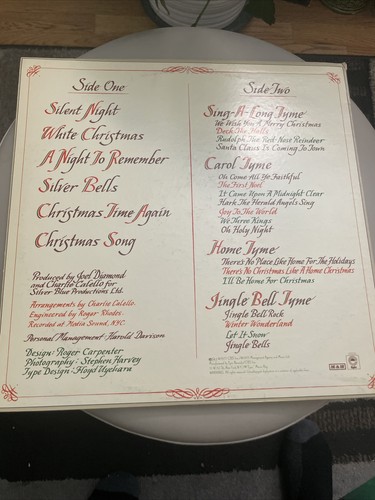 Side One
Silent Night
White Christmas
A Night To Remember
Silver Bells
Christmas Time Again
Christmas Song
Produced by Joel Diamond
and Charlie Calello for
Silver Blue Productions Ltd.
Arrangements by Charlie Calello.
Engineered by Roger Rhodes
Recorded at Media Sound, NYC.
Personal Management: Harold Davison
Design: Roger Carpenter
Photography: Stephen Harvey
Type Design: Floyd Uyehara
Side Two
Sing-A-Long Tyme
We Wish You A Merry Christmas
Deck The Halls
Rudolph The Red Nose Reindeer
Santa Claus Is Coming To Town
Carol Tyme
Oh Come All Ye Faithful
The First Noel
It Came Upon A Midnight Clear
Hark The Herald Angels Sing
Joy To The World
We Three Kings
Oh Holy Night
Home Tyme
There's No Place Like Home For The Holidays
There's No Christmas Like A Home Christmas
I'll Be Home For Christmas
Jingle Bell Tyme
Jingle Bell Rock
Winter Wonderland
Let It Snow
Jingle Bells